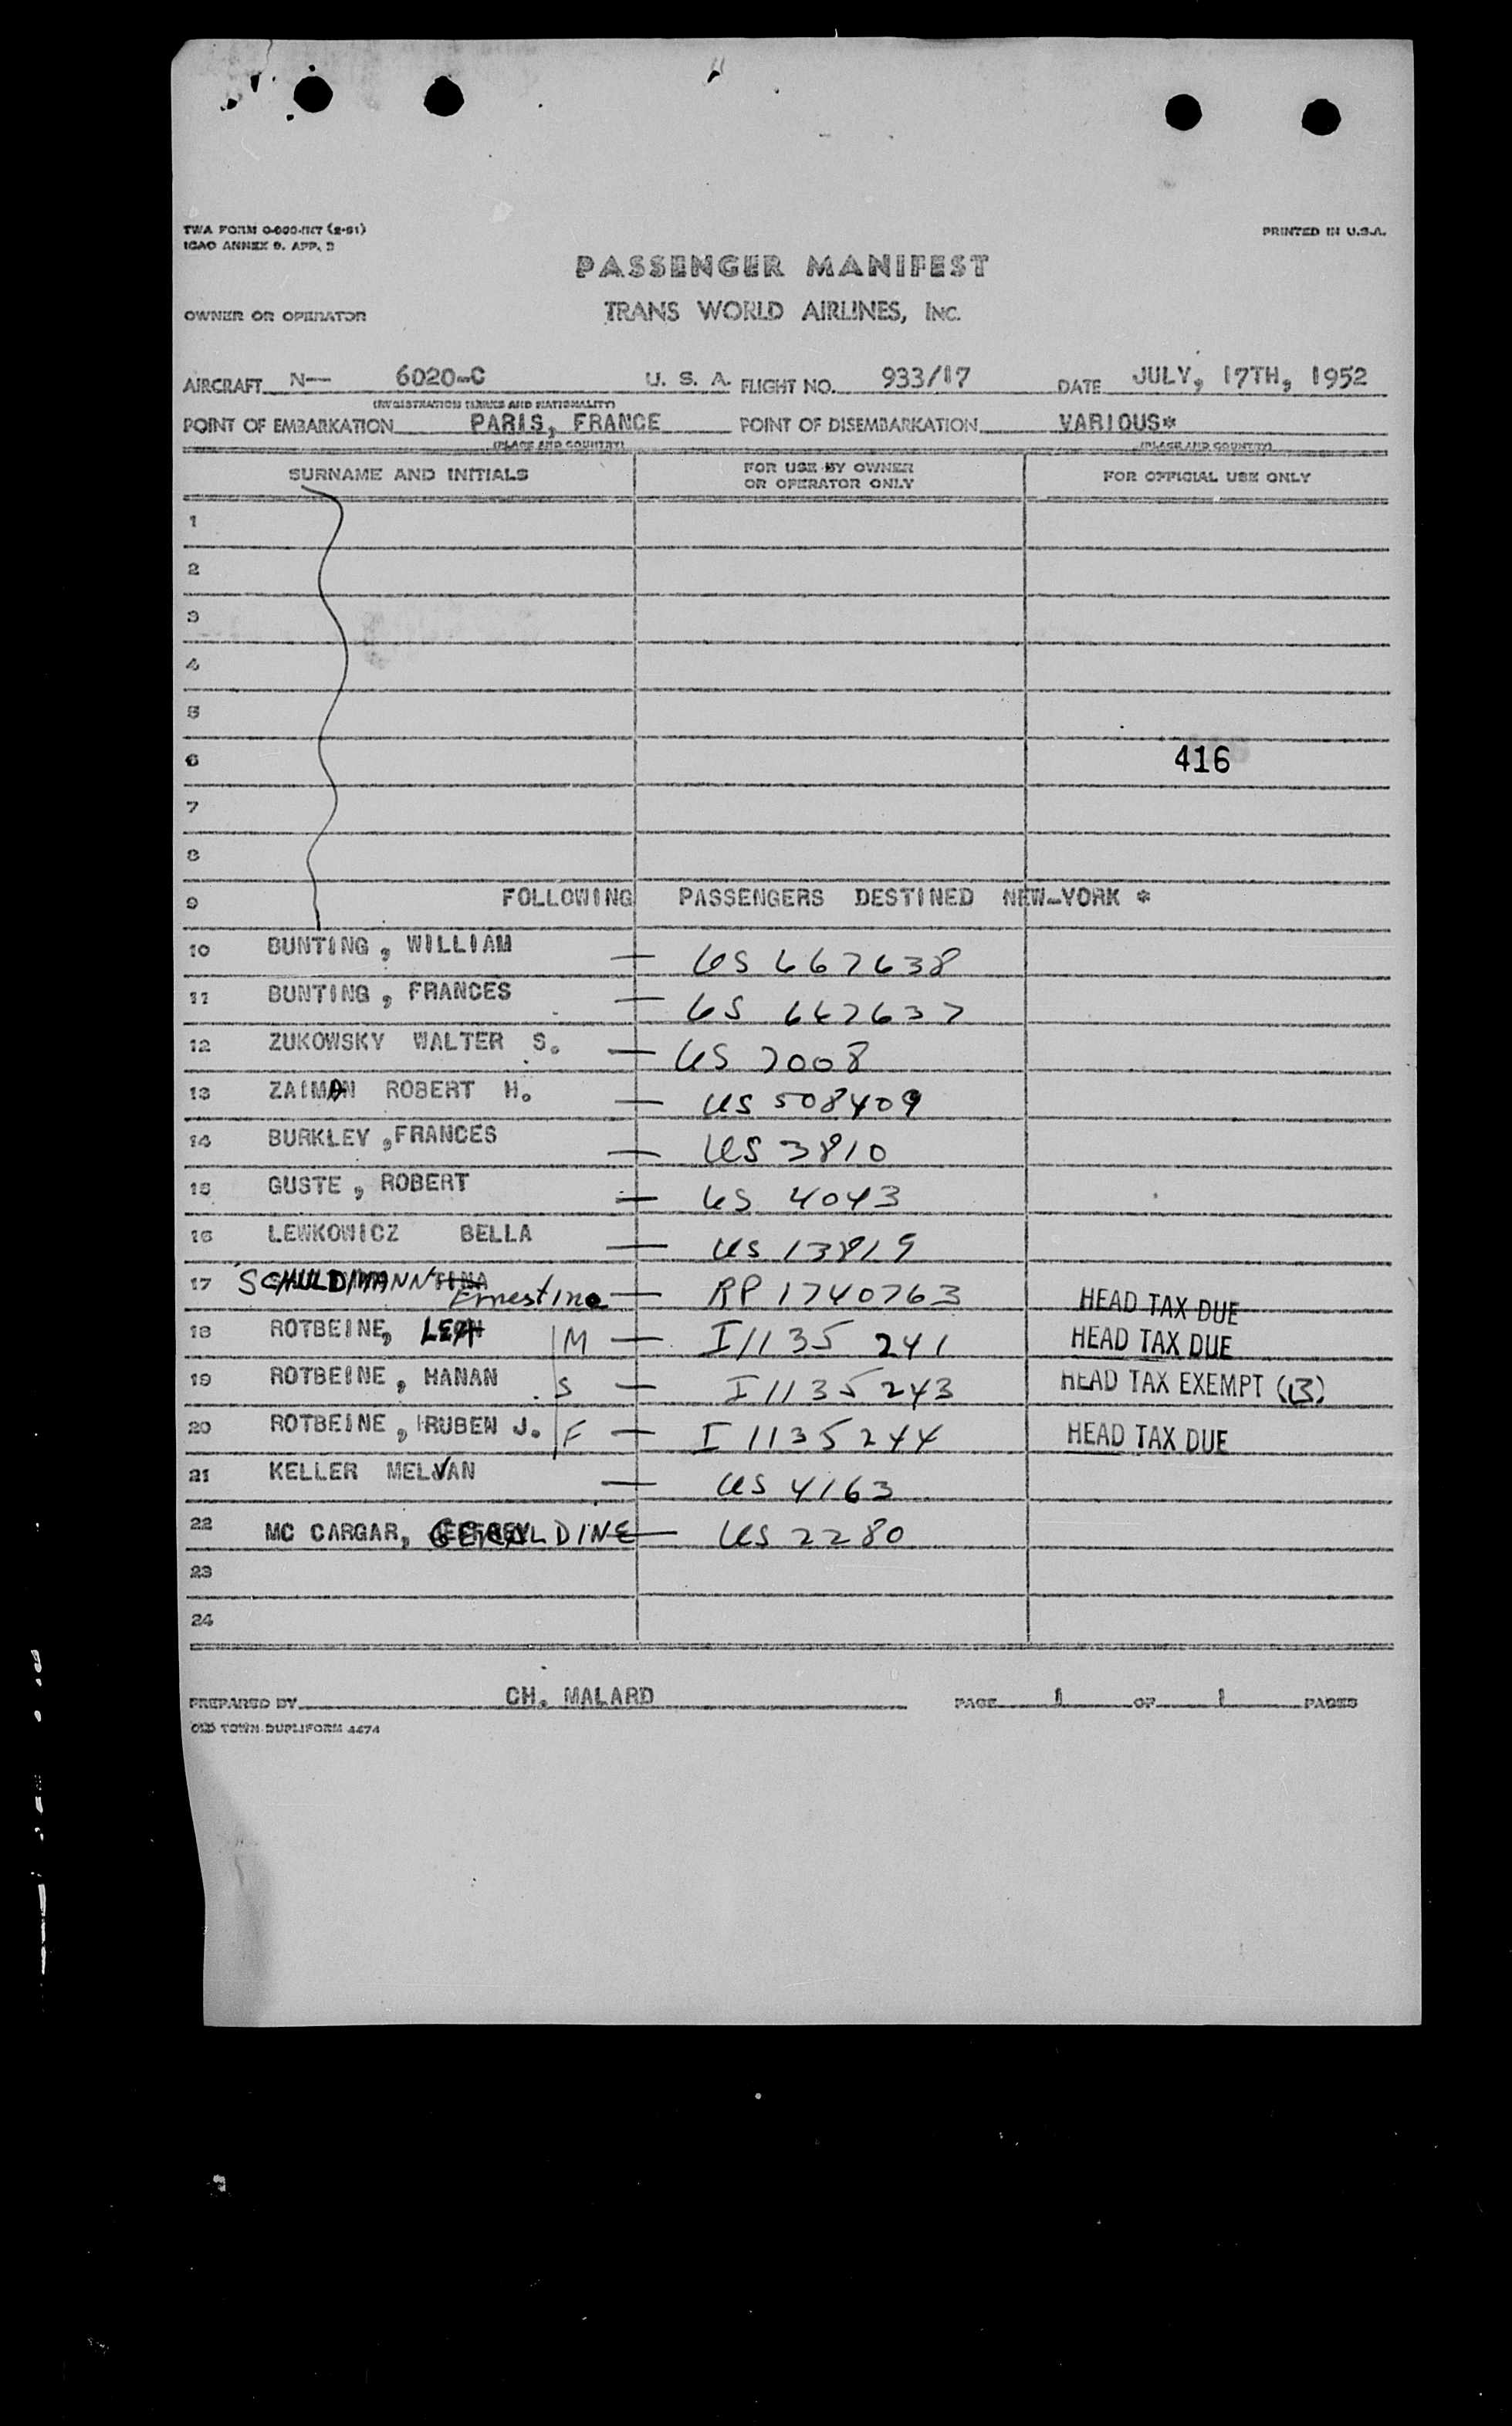 TWA FORM O-000-INT (2-51)
ICAO ANNEX 9, APP. 3
PRINTED IN U.S.A.
PASSENGER MANIFEST
OWNER OR OPERATOR TRANS WORLD AIRLINES, INC.
AIRCRAFT N— 6020-C U. S. A. FLIGHT NO. 933/17 DATE JULY, 17TH, 1952
(REGISTRATION MARKS AND NATIONALITY)
POINT OF EMBARKATION PARIS, FRANCE POINT OF DISEMBARKATION VARIOUS*
(PLACE AND COUNTRY) (PLACE AND COUNTRY)
SURNAME AND INITIALS FOR USE BY OWNER OR OPERATOR ONLY FOR OFFICIAL USE ONLY
1
2
3
4
5
6 416
7
8
9 FOLLOWING PASSENGERS DESTINED NEW-YORK *
10 BUNTING, WILLIAM — US 667638
11 BUNTING, FRANCES — US 667637
12 ZUKOWSKY WALTER S. — US 7008
13 ZAIMAN ROBERT H. — US 508409
14 BURKLEY, FRANCES — US 3810
15 GUSTE, ROBERT — US 4043
16 LEWKOWICZ BELLA — US 13819
17 SCHULDMANN Ernestine — RP 1740763 HEAD TAX DUE
18 ROTBEINE, LEAH M — I 1135 241 HEAD TAX DUE
19 ROTBEINE, HANAN S — I 1135243 HEAD TAX EXEMPT (13)
20 ROTBEINE, RUBEN J. F — I 1135244 HEAD TAX DUE
21 KELLER MELVAN — US 4163
22 MC CARGAR, GERALDINE — US 2280
23
24
PREPARED BY CH. MALARD PAGE 1 OF 1 PAGES
OLD TOWN DUPLIFORM 4474